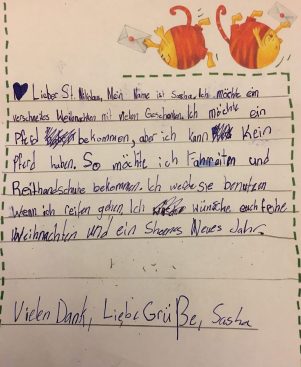 Lieber St. Nikolaus, Mein Name ist Sasha. Ich möchte ein
verschneites Weihnachten mit vielen Geschenken. Ich möchte ein
Pferd bekommen, aber ich kann kein
Pferd haben. So möchte ich und
Reithandschuhe bekommen. Ich werde sie benutzen
wenn ich reiten gehen. Ich wünsche euch frohe
Weihnachten und ein Neues Jahr.
Vielen Dank, Liebe Grüße, Sasha